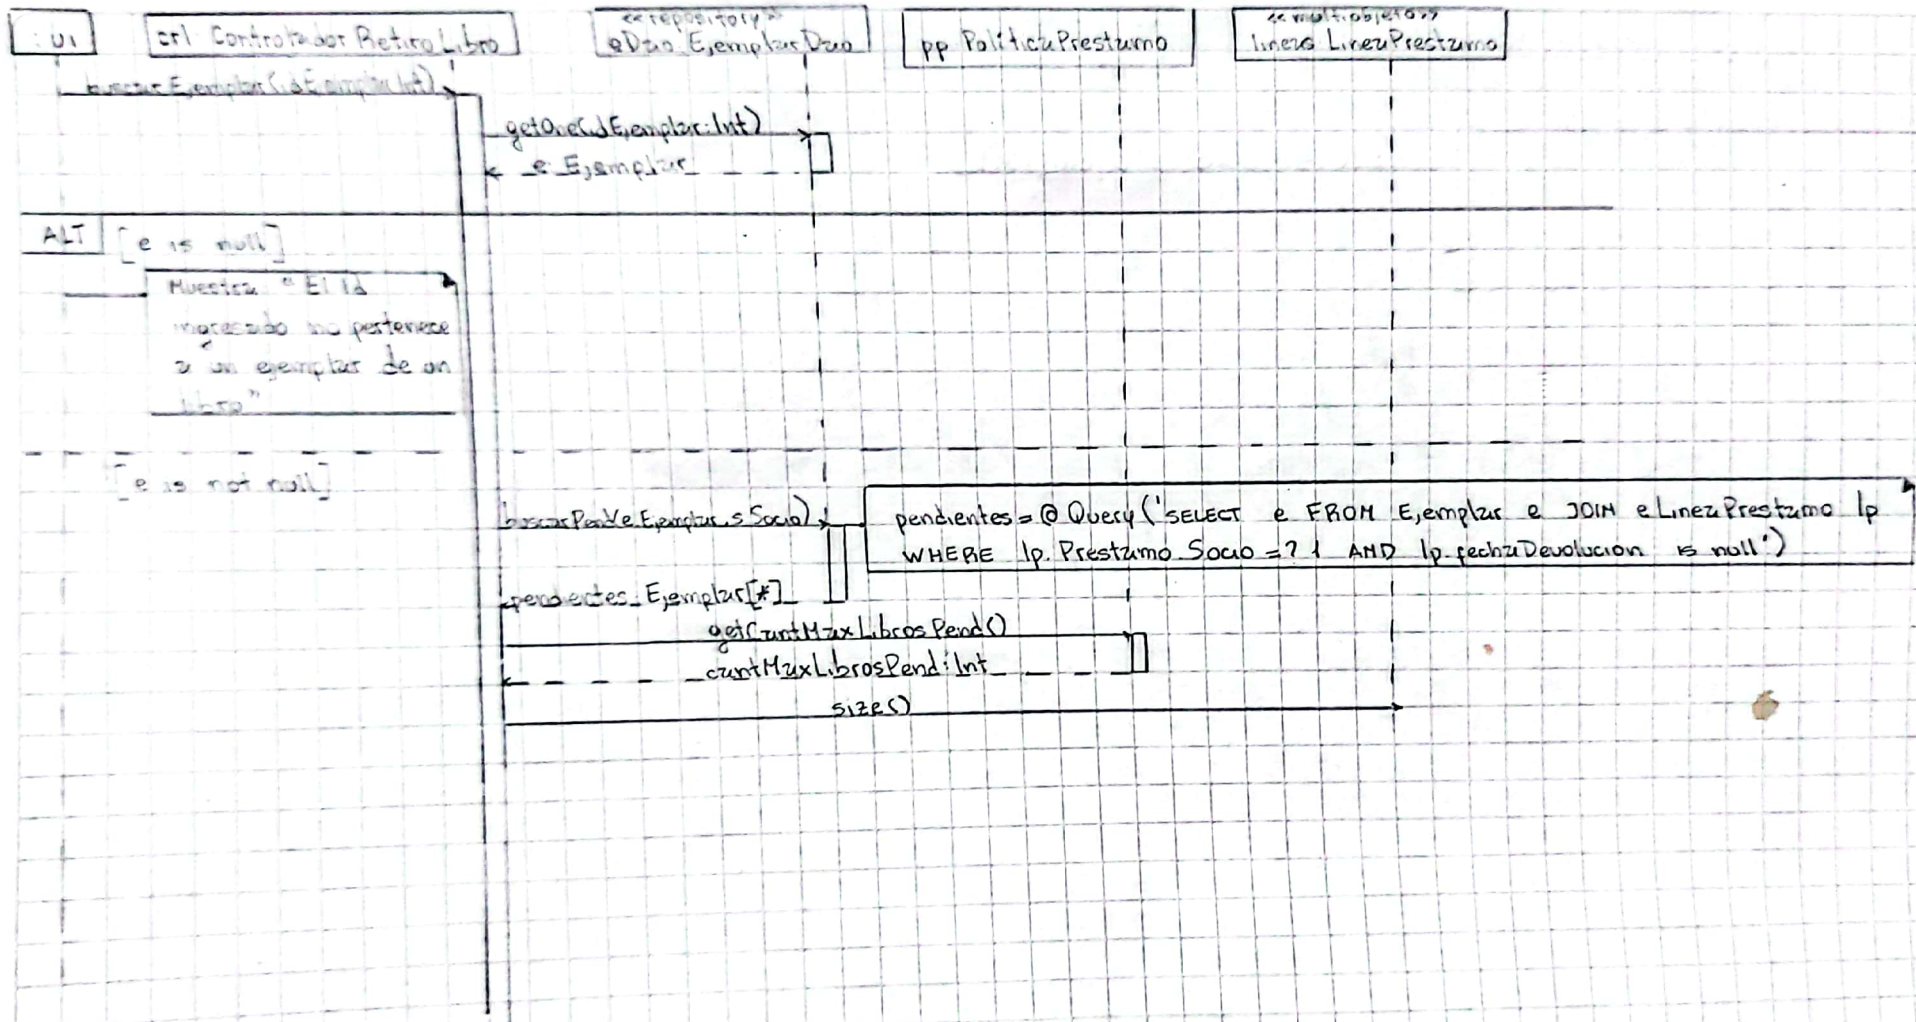 : UI
crl: Controlador Retiro Libro
<<repository>>
eDao: EjemplarDao
pp: PoliticaPrestamo
<<multiobjeto>>
lineas: LineaPrestamo
buscarEjemplar(idEjemplar:Int)
getOne(idEjemplar:Int)
e: Ejemplar
ALT
[e is null]
Muestra "El id
ingresado no pertenece
a un ejemplar de un
libro"
[e is not null]
buscarPend(e:Ejemplar, s:Socio)
pendientes = @Query('SELECT e FROM Ejemplar e JOIN e.LineaPrestamo lp
WHERE lp.Prestamo.Socio = ?1 AND lp.fechaDevolucion is null')
pendientes: Ejemplar[*]
getCantMaxLibrosPend()
cantMaxLibrosPend: Int
size()